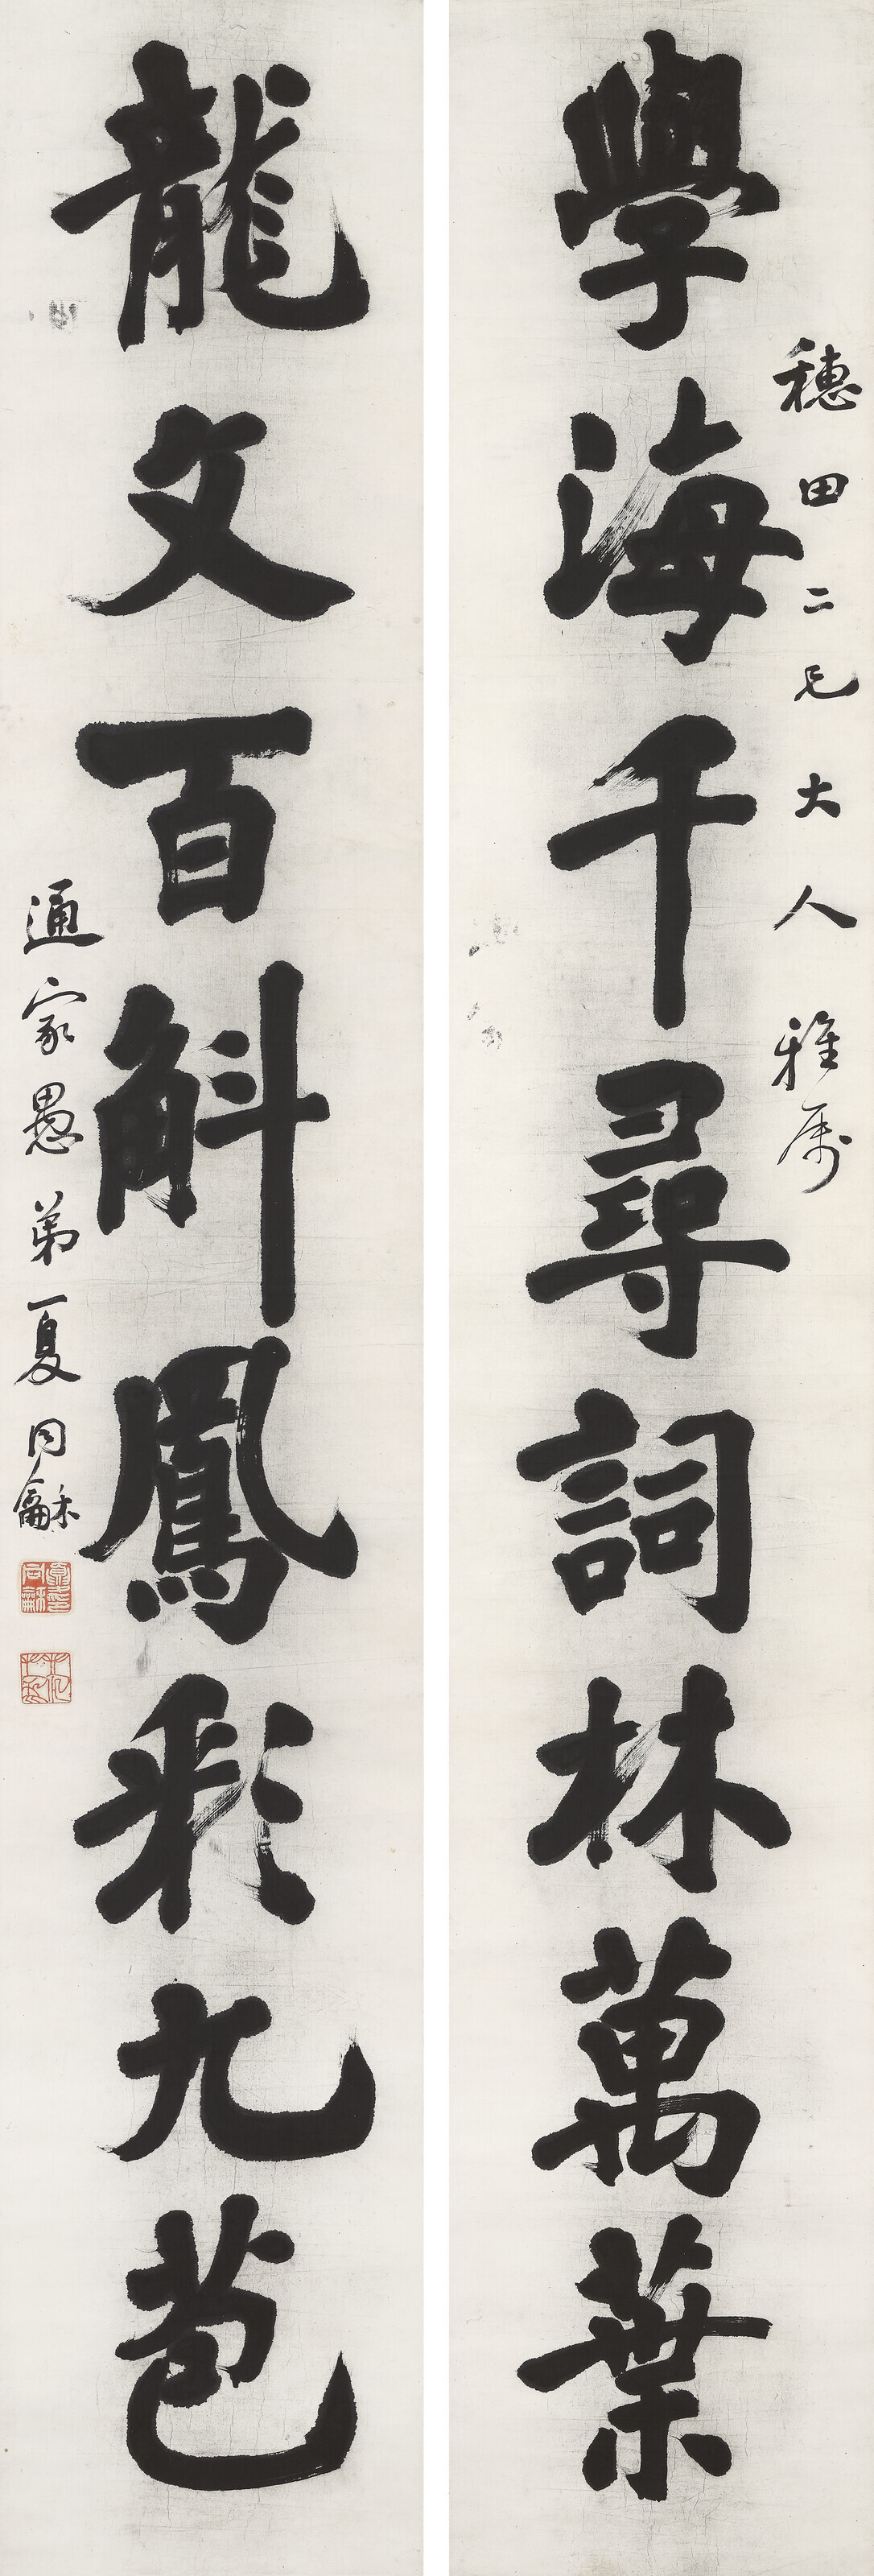 穗田二兄大人雅屬
學海千尋詞林萬葉
龍文百斛鳳彩九苞
通家愚弟夏同龢